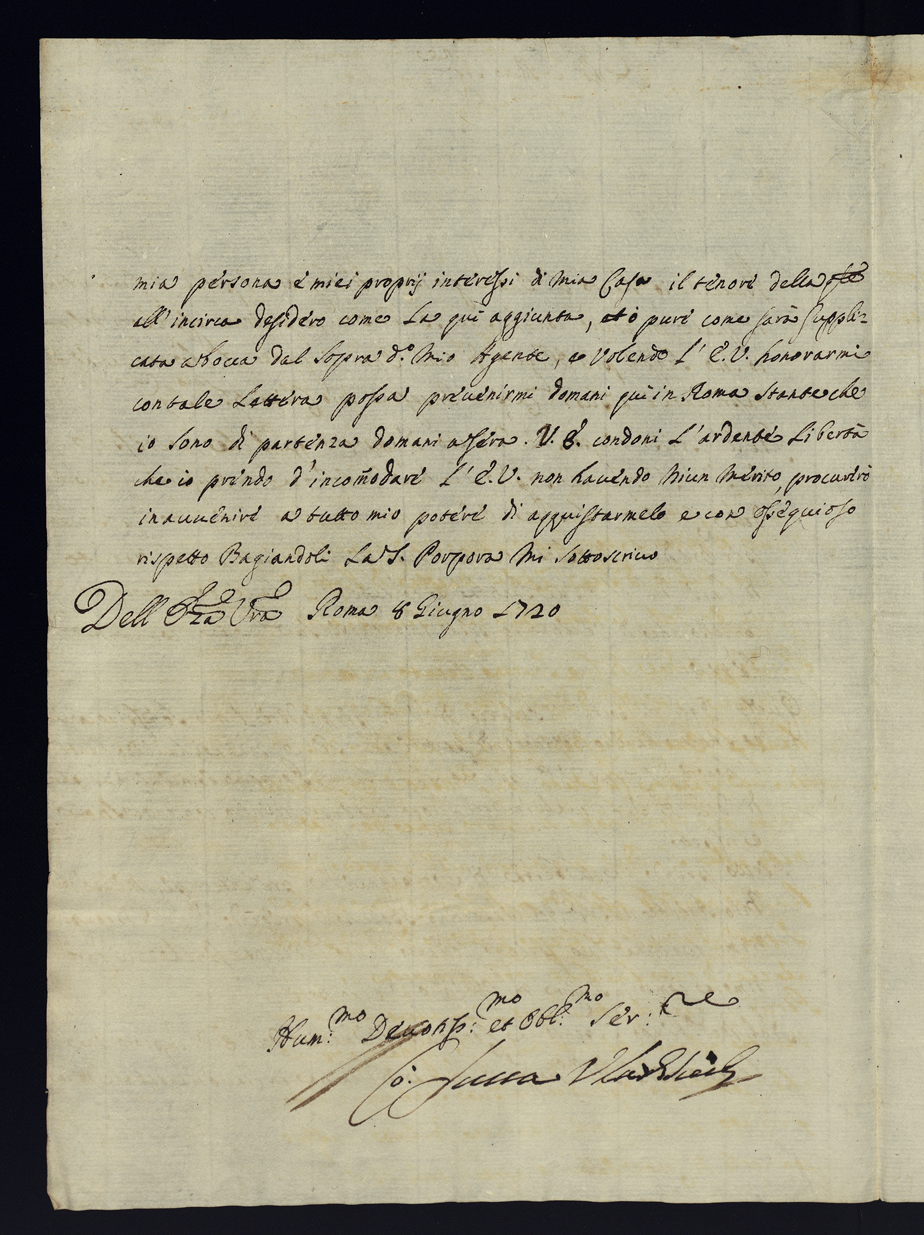 mia persona e miei proprij interessi di Mia Casa il tenore della
all'incirca desidero come La qui aggiunta, ò pure come sarà suppli=
cata a bocca dal sopra d.º Mio Agente, e Volendo L'E.V. honorarmi
con tale Lettera possa prevenirmi domani qui in Roma Stante che
io sono di partenza domani a sera. V.E. condoni L'ardente Libertà
che io prendo d'incom̃odare L'E.V. non havendo Niun Merito, procurerò
in avvenire a tutto mio potere di acquistarmelo e con ossequioso
rispetto Bagiandoli La S. Porpora Mi Sottoscrivo
Dell Eza Vra Roma 8 Giugno 1720
Hum:mo Devotiss:mo et Obl:mo Ser:re
Co: Lucca